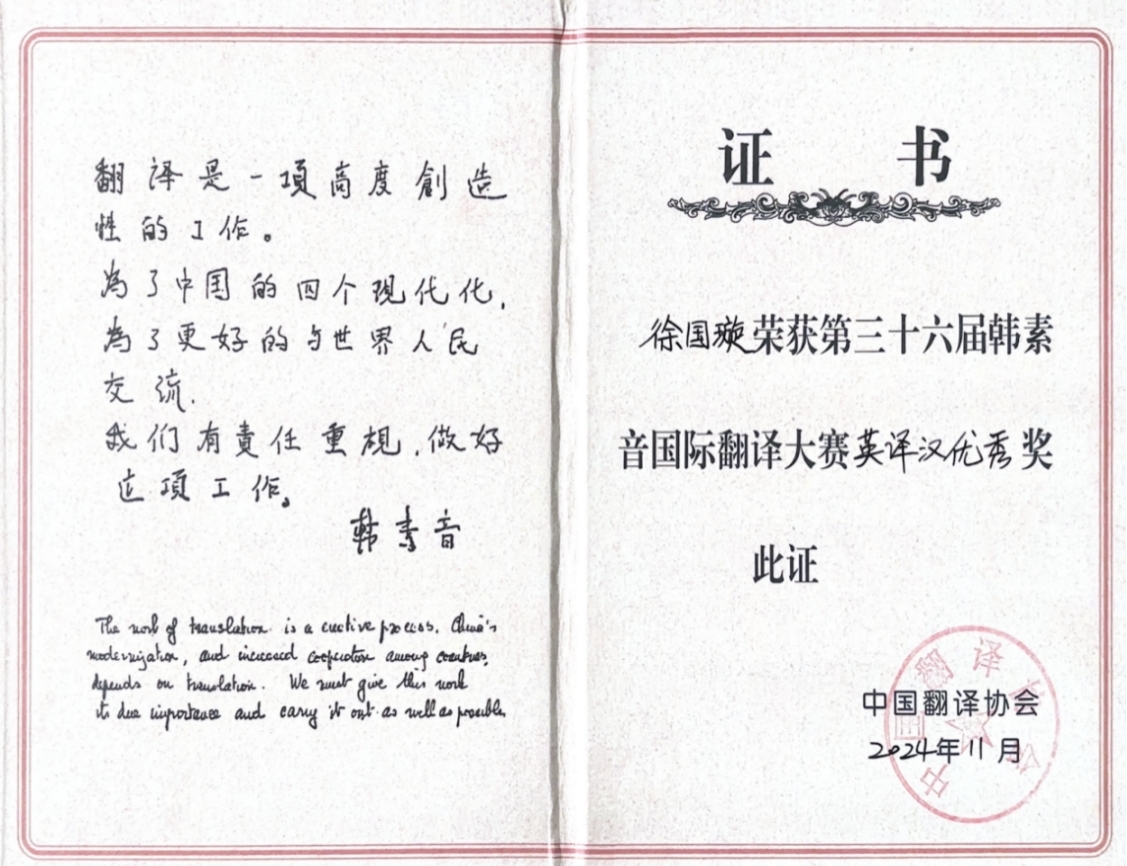 翻译是一項高度創造
性的工作。
為了中国的四个现代化,
為了更好的与世界人民
交流.
我们有責任重視,做好
这項工作。
韩素音
The work of translation is a creative process. China's
modernization, and increased cooperation among countries,
depends on translation. We must give this work
its due importance and carry it out as well as possible.
证书
徐国璇荣获第三十六届韩素
音国际翻译大赛英译汉优秀奖
此证
中国翻译协会
中国翻译协会
2024年11月